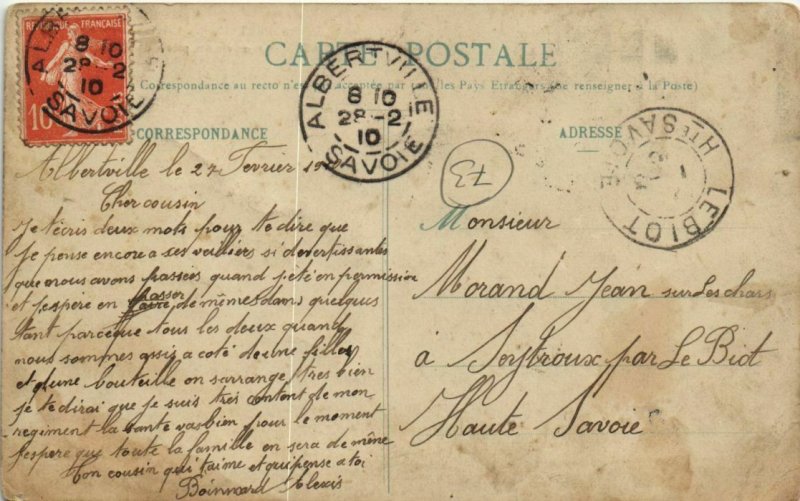 REPUBLIQUE FRANÇAISE
10
ALBERTVILLE
8 10
28 - 2
10
SAVOIE
CARTE POSTALE
Correspondance au recto n'est pas acceptée par tous les Pays Etrangers (Se renseigner à la Poste)
CORRESPONDANCE
ALBERTVILLE
8 10
28 - 2
10
SAVOIE
ADRESSE
LE BIOT
Hte SAVOIE
73
Albertville le 27 Fevrier 19
Cher cousin
Je técris deux mots pour te dire que
je pense encore a ses veilliers si divertissantes
que nous avons passées quand jété en permission
et jespere en passer faire de mêmes dans quelques
tant parceque tous les deux quand
nous sommes assis a coté de une filles
et dune bouteille on sarrange très bien
je te dirai que je suis tres contont de mon
regiment la sante vas bien pour le moment
jespere que toute la famille en sera de même
ton cousin qui t'aime et qui pense a toi
Alexis
Monsieur
Morand Jean sur Les chars
à par Le Biot
Haute Savoie